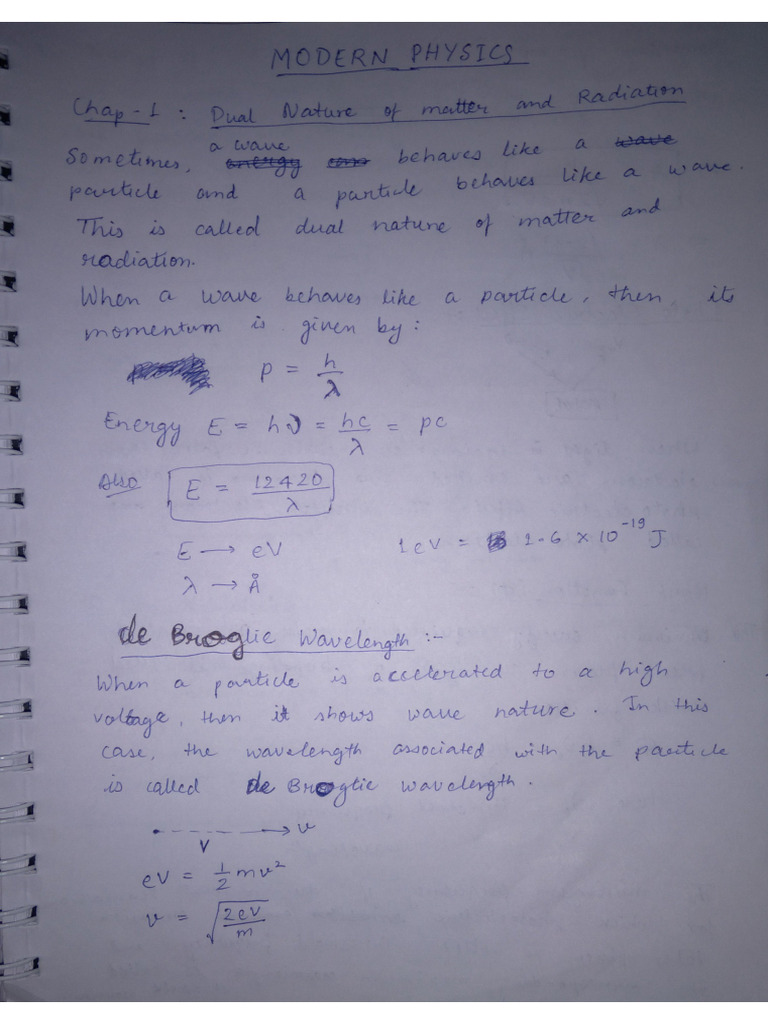 MODERN PHYSICS
Chap-1 : Dual Nature of matter and Radiation
Sometimes, a wave behaves like a
particle and a particle behaves like a wave.
This is called dual nature of matter and
radiation.
When a wave behaves like a particle, then its
momentum is given by:
p = h/λ
Energy E = hν = hc/λ = pc
Also E = 12420/λ
E → eV 1eV = 1.6 × 10⁻¹⁹ J
λ → Å
de Broglie Wavelength :-
When a particle is accelerated to a high
voltage, then it shows wave nature. In this
case, the wavelength associated with the particle
is called de Broglie wavelength.
v
V
eV = 1/2 mv²
v = √(2eV/m)